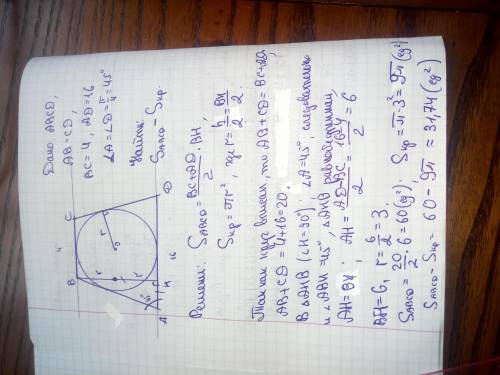 Дано: ABCD,
AB = CD,
BC = 4, AD = 16
∠A = ∠D = π/4 = 45°
Найти:
S_ABCD − S_кр
B
4
C
r
r
r
O
45°
A
H
16
D
Решение: S_ABCD = (BC + AD)/2 · BH,
S_кр = πr², где r = h/2 = BH/2.
Так как круг вписан, то AB + CD = BC + AD,
AB + CD = 4 + 16 = 20.
В △AHB (∠H = 90°) ∠A = 45°, следовательно
и ∠ABH = 45°, △AHB равнобедренный,
AH = BH; AH = (AD − BC)/2 = (16 − 4)/2 = 6
BH = 6, r = 6/2 = 3.
S_ABCD = 20/2 · 6 = 60 (ед²). S_кр = π · 3² = 9π (ед²)
S_ABCD − S_кр = 60 − 9π ≈ 31,74 (ед²)